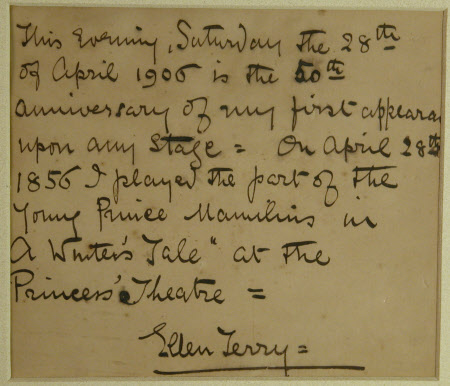 This Evening, Saturday the 28th
of April 1906 is the 50th
anniversary of my first appearan
upon any Stage = On April 28th
1856 I played the part of the
Young Prince Mamilius in
A Winter's Tale" at the
Princess' Theatre =
Ellen Terry =